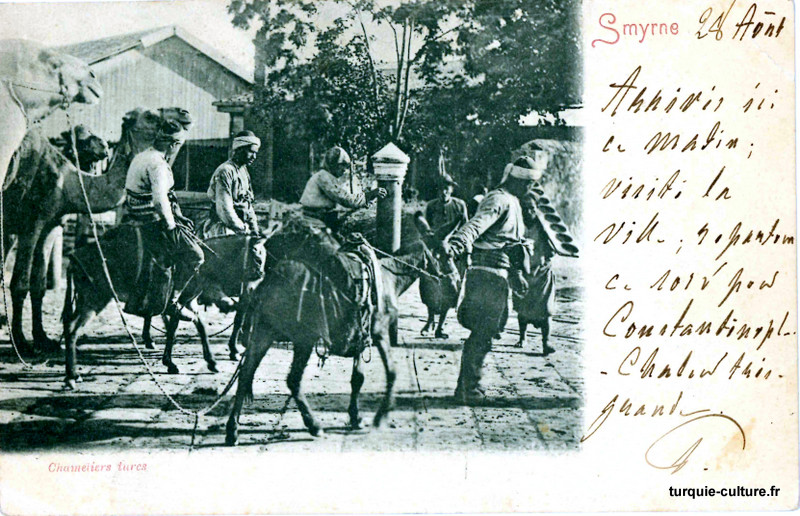 Smyrne 28 Août
Arrivés ici
ce matin;
visité la
ville; repartons
ce soir pour
Constantinople
- Chaleur très
grande.
Chameliers turcs
turquie-culture.fr